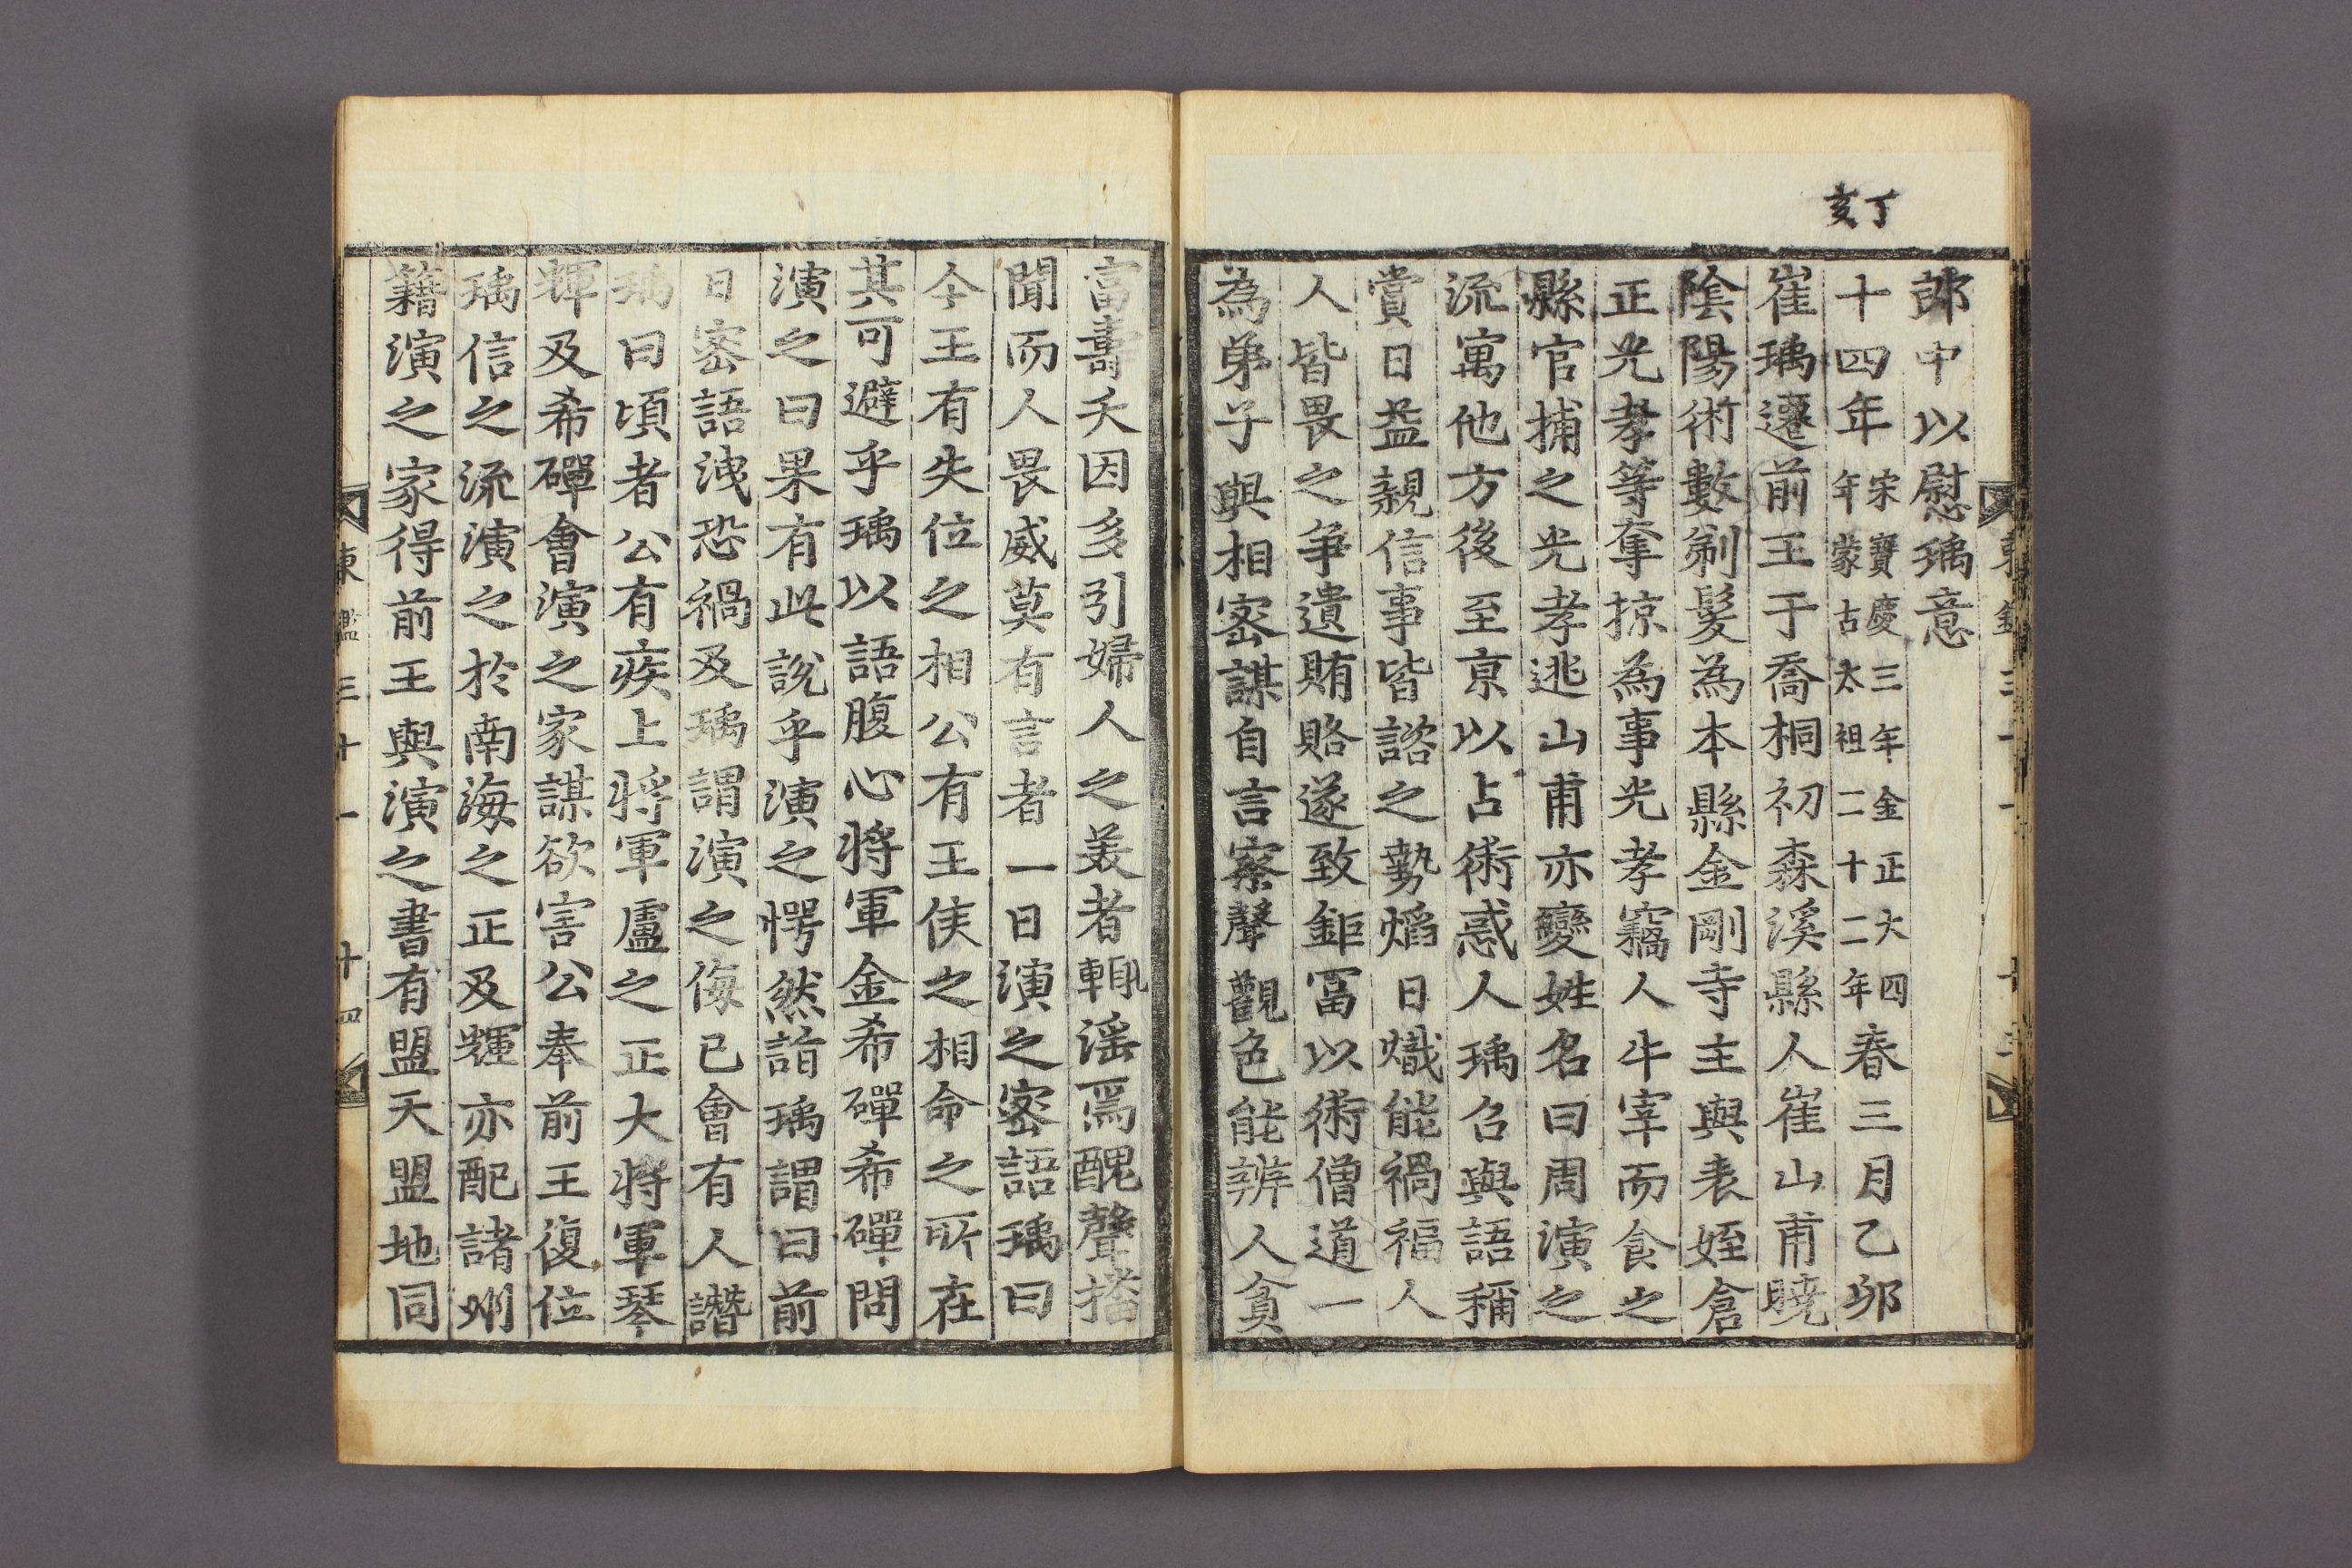 丁亥
郎中以慰瑀意
十四年宋寶慶三年金正大四年蒙古太祖二十二年春三月乙卯
崔瑀遷前王于喬桐初森溪縣人崔山甫曉
陰陽術數剃髮為本縣金剛寺主與表姪倉
正光孝等奪掠為事光孝竊人牛宰而食之
縣官捕之光孝逃山甫亦變姓名曰周演之
流寓他方後至京以占術惑人瑀召與語稱
賞日益親信事皆諮之勢焰日熾能禍福人
人皆畏之爭遺賄賂遂致鉅富以術僧道一
為弟子與相密謀自言察聲觀色能辨人貧
富壽夭因多引婦人之美者輒滛焉醜聲播
聞而人畏威莫有言者一日演之密語瑀曰
今王有失位之相公有王侯之相命之所在
其可避乎瑀以語腹心將軍金希磾希磾問
演之曰果有此說乎演之愕然詣瑀謂曰前
日密語洩恐禍及瑀謂演之侮已會有人譖
瑀曰頃者公有疾上將軍盧之正大將軍琴
輝及希磾會演之家謀欲害公奉前王復位
瑀信之流演之於南海之正及輝亦配諸州
籍演之家得前王與演之書有盟天盟地同
東鑑三十一 十四